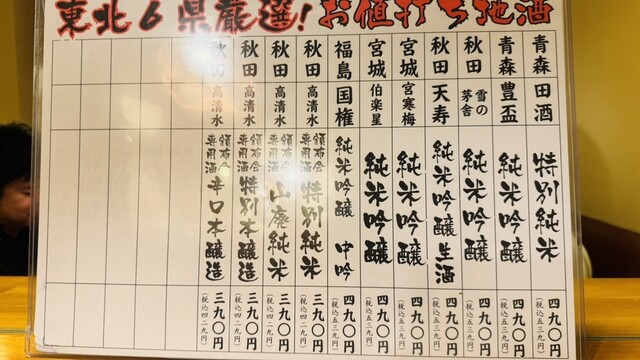 東北6県厳選!お値打ち地酒
青森 田酒 特別純米 四九〇円 (税込五三九円)
青森 豊盃 純米吟醸 四九〇円 (税込五三九円)
秋田 雪の茅舎 純米吟醸 四九〇円 (税込五三九円)
秋田 天寿 純米吟醸生酒 四九〇円 (税込五三九円)
宮城 宮寒梅 純米吟醸 四九〇円 (税込五三九円)
宮城 伯楽星 純米吟醸 四九〇円 (税込五三九円)
福島 国権 純米吟醸 中吟 四九〇円 (税込五三九円)
秋田 高清水 頒布会専用酒 特別純米 三九〇円 (税込四二九円)
秋田 高清水 頒布会専用酒 山廃純米 三九〇円 (税込四二九円)
秋田 高清水 頒布会専用酒 特別本醸造 三九〇円 (税込四二九円)
秋田 高清水 頒布会専用酒 辛口本醸造 三九〇円 (税込四二九円)